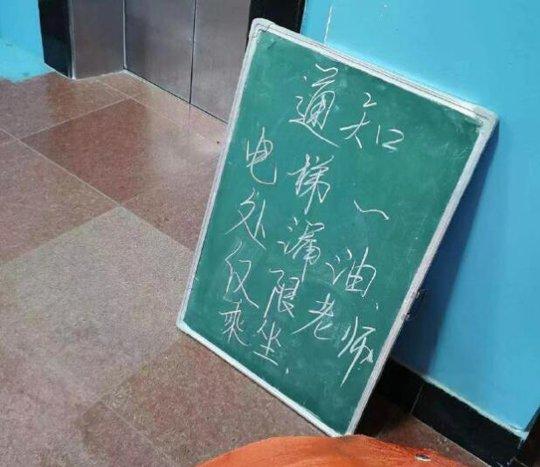 通知
电梯一
处漏油、
仅限老师
乘坐.